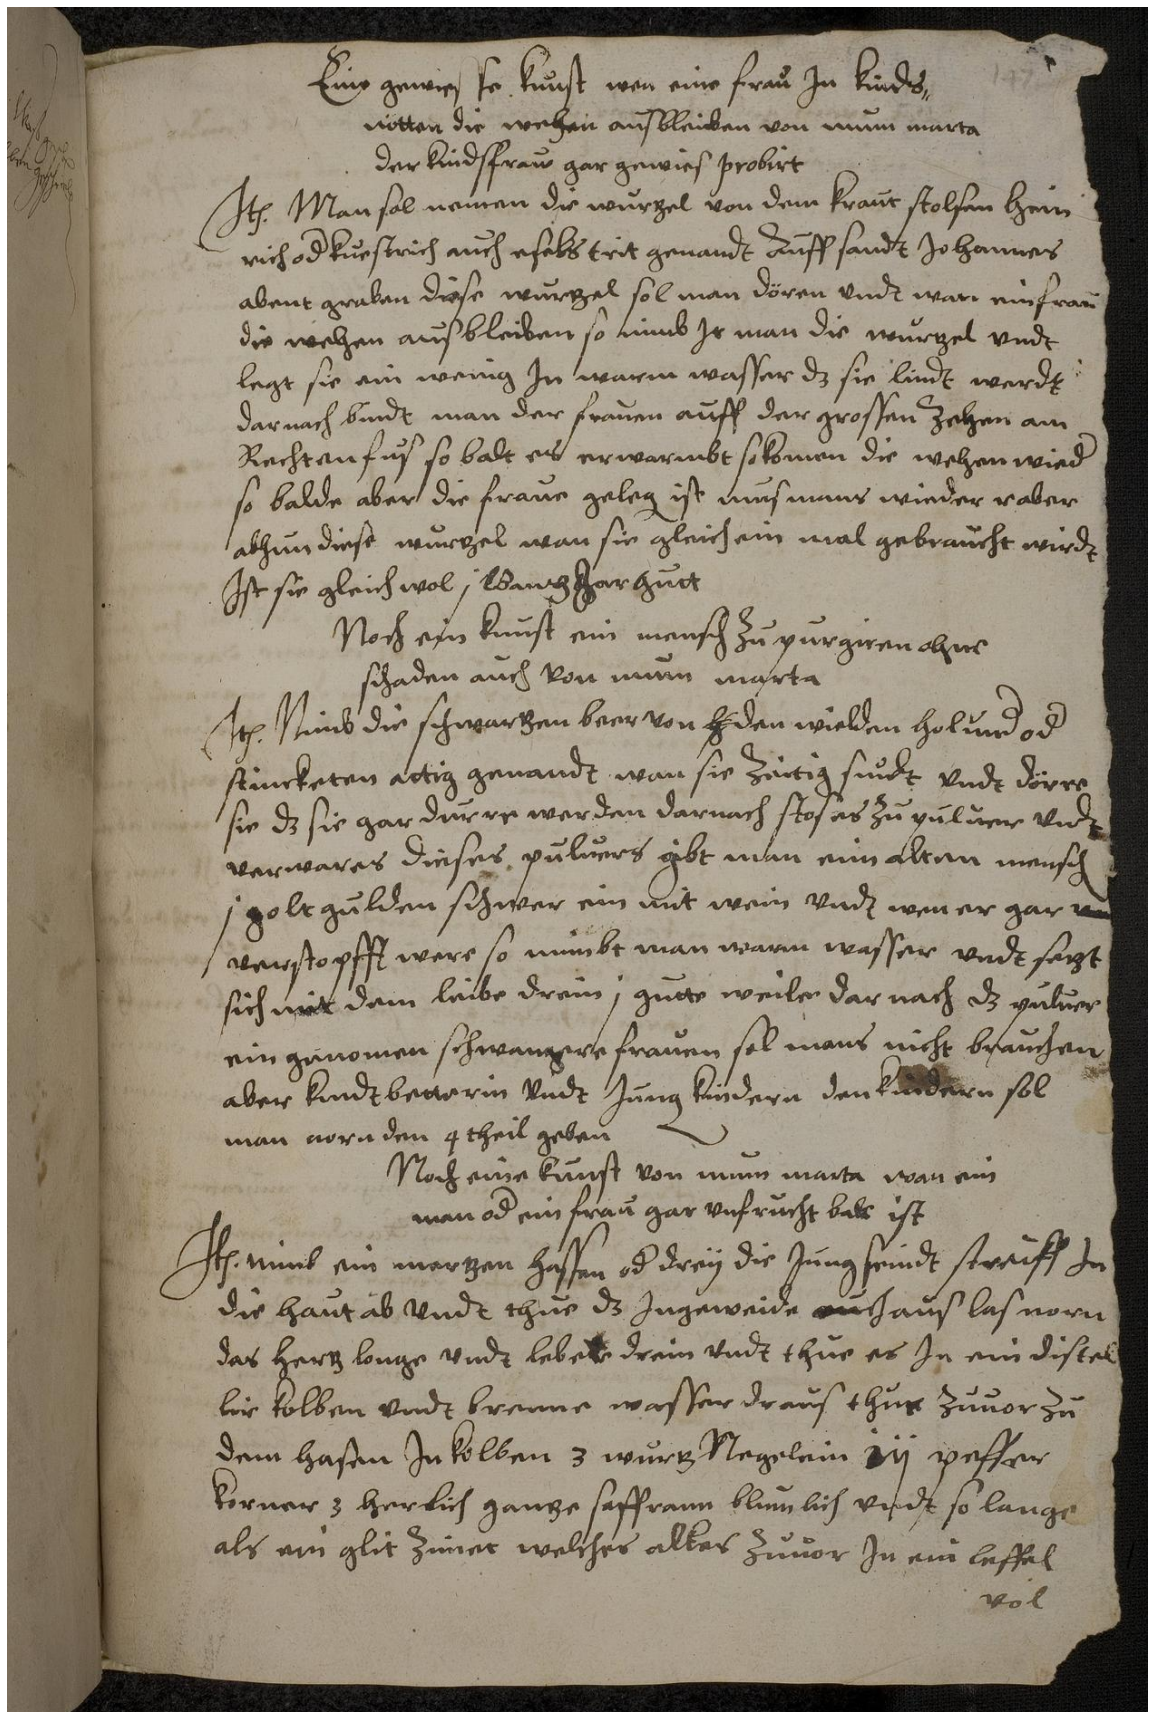 147
Eine gewies se kunst wen eine frau In kinds„
nötten die wehen ausbleiben von mum marta
der kindsfraw gar gewies probirt
Ith. Man sol nemen die wurtzel von dem kraut stolsen hein
rich od kuestrich auch eselstrit genandt Auff sandt Johannes
abent graben diese wurtzel sol man dören vndt wan ein frau
die wehen ausbleiben so nimb Ir man die wurtzel vndt
legt sie ein wenig In warm wasser dz sie lindt werdt
darnach bindt man der frauen auff der grossen Zehen am
Rechten fus so balt es erwarmbt so komen die wehen wied
so balde aber die fraue geleg ist mus mans wieder raber
abthun diese wurtzel wan sie gleich ein mal gebraucht wirdt
Ist sie gleich wol j gantz Jar gutt
Noch ein kunst ein mensch Zu purgiren ohne
schaden auch von mum marta
Ith. Nimb die schwartzen beer von den wielden holund od
stincketen attig genandt wan sie Zeitig sindt vndt dörre
sie dz sie gar durre werden darnach stos es Zu puluer vndt
verwares dieses puluers gibt man eim alten mensch
j golt gulden schwer ein mit wein vndt wen er gar
verstopfft were so nimbt man warm wasser vndt setzt
sich mit dem leibe drein j gutte weile darnach dz puluer
ein genomen schwangere frauen sol mans nicht brauchen
aber kindtbetterin vndt Jung kindern den kindern sol
man norn den 4 theil geben
Noch eine kunst von mum marta wan ein
man od ein frau gar vnfrucht bar ist
Ith. nimb ein mertzen hassen od dreij die Jung seindt streiff In
die haut ab vndt thue dz Ingeweide auch aus las norn
das hertz longe vndt leber drein vndt thue es In ein distel
lir kolben vndt brenne wasser draus thue Zuuor Zu
dem hasen In kolben 3 wurtz Negelein iij peffer
korner 3 herlich gantze saffrann blumlich vndt so lange
als ein glit Zimet welches alles Zuuor In ein leffel
vol